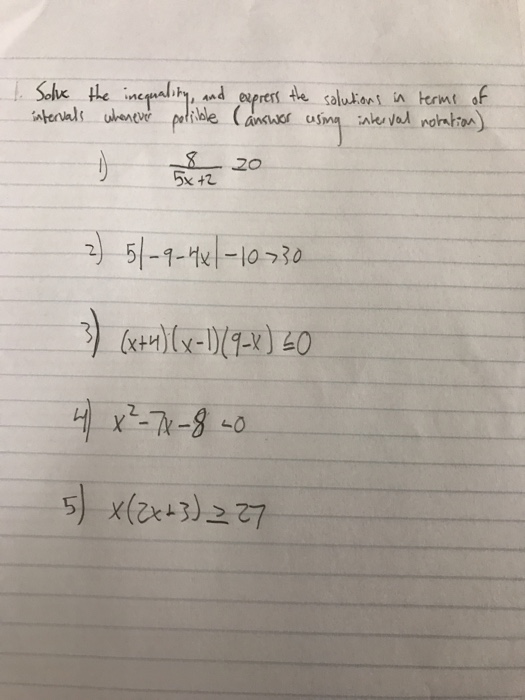 1. Solve the inequality, and express the solutions in terms of
intervals whenever possible (answer using interval notation)
1) 8/(5x+2) ≥0
2) 5|-9-4x|-10>30
3) (x+4)(x-1)(9-x)≤0
4) x²-7x-8<0
5) x(2x+3)≥27